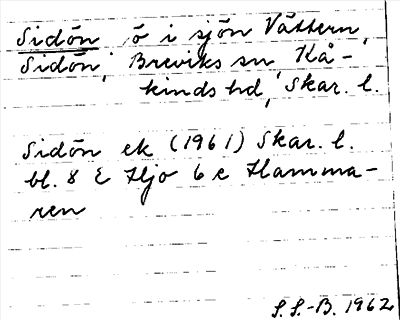 Sidön ö i sjön Vättern,
Sidön, Breviks sn Kå-
kinds hd, Skar. l.
Sidön ek (1961) Skar. l.
bl. 8 E Hjo 6 c Hamma-
ren
S. S.-B. 1962